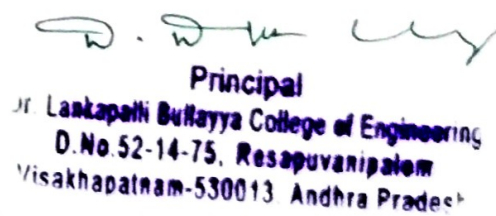 Principal
Dr. Lankapalli Bullayya College of Engineering
D.No.52-14-75, Resapuvanipalem
Visakhapatnam-530013 Andhra Pradesh